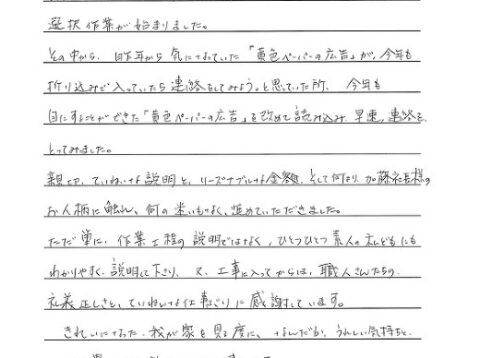 選択作業が始まりました。
その中から、昨年から気になっていた「黄色ペーパーの広告」が、今年も
折り込みで入っていたら連絡をしてみよう。と思っていた所、今年も
目にすることができた「黄色ペーパーの広告」を改めて読み込み、早速、連絡を
とってみました。
親切、ていねいな説明と、リーズナブルな金額、そして何より加藤社長様の
お人柄に触れ、何の迷いもなく、進めていただきました。
ただ単に、作業工程の説明ではなく、ひとつひとつ素人の私どもにも
わかりやすく、説明して下さり、又、工事に入ってからは、職人さんたちの
礼義正しさと、ていねいな仕事ぶりに感謝しています。
きれいになった、我が家を見る度に、なんだか、うれしい気持ちと、